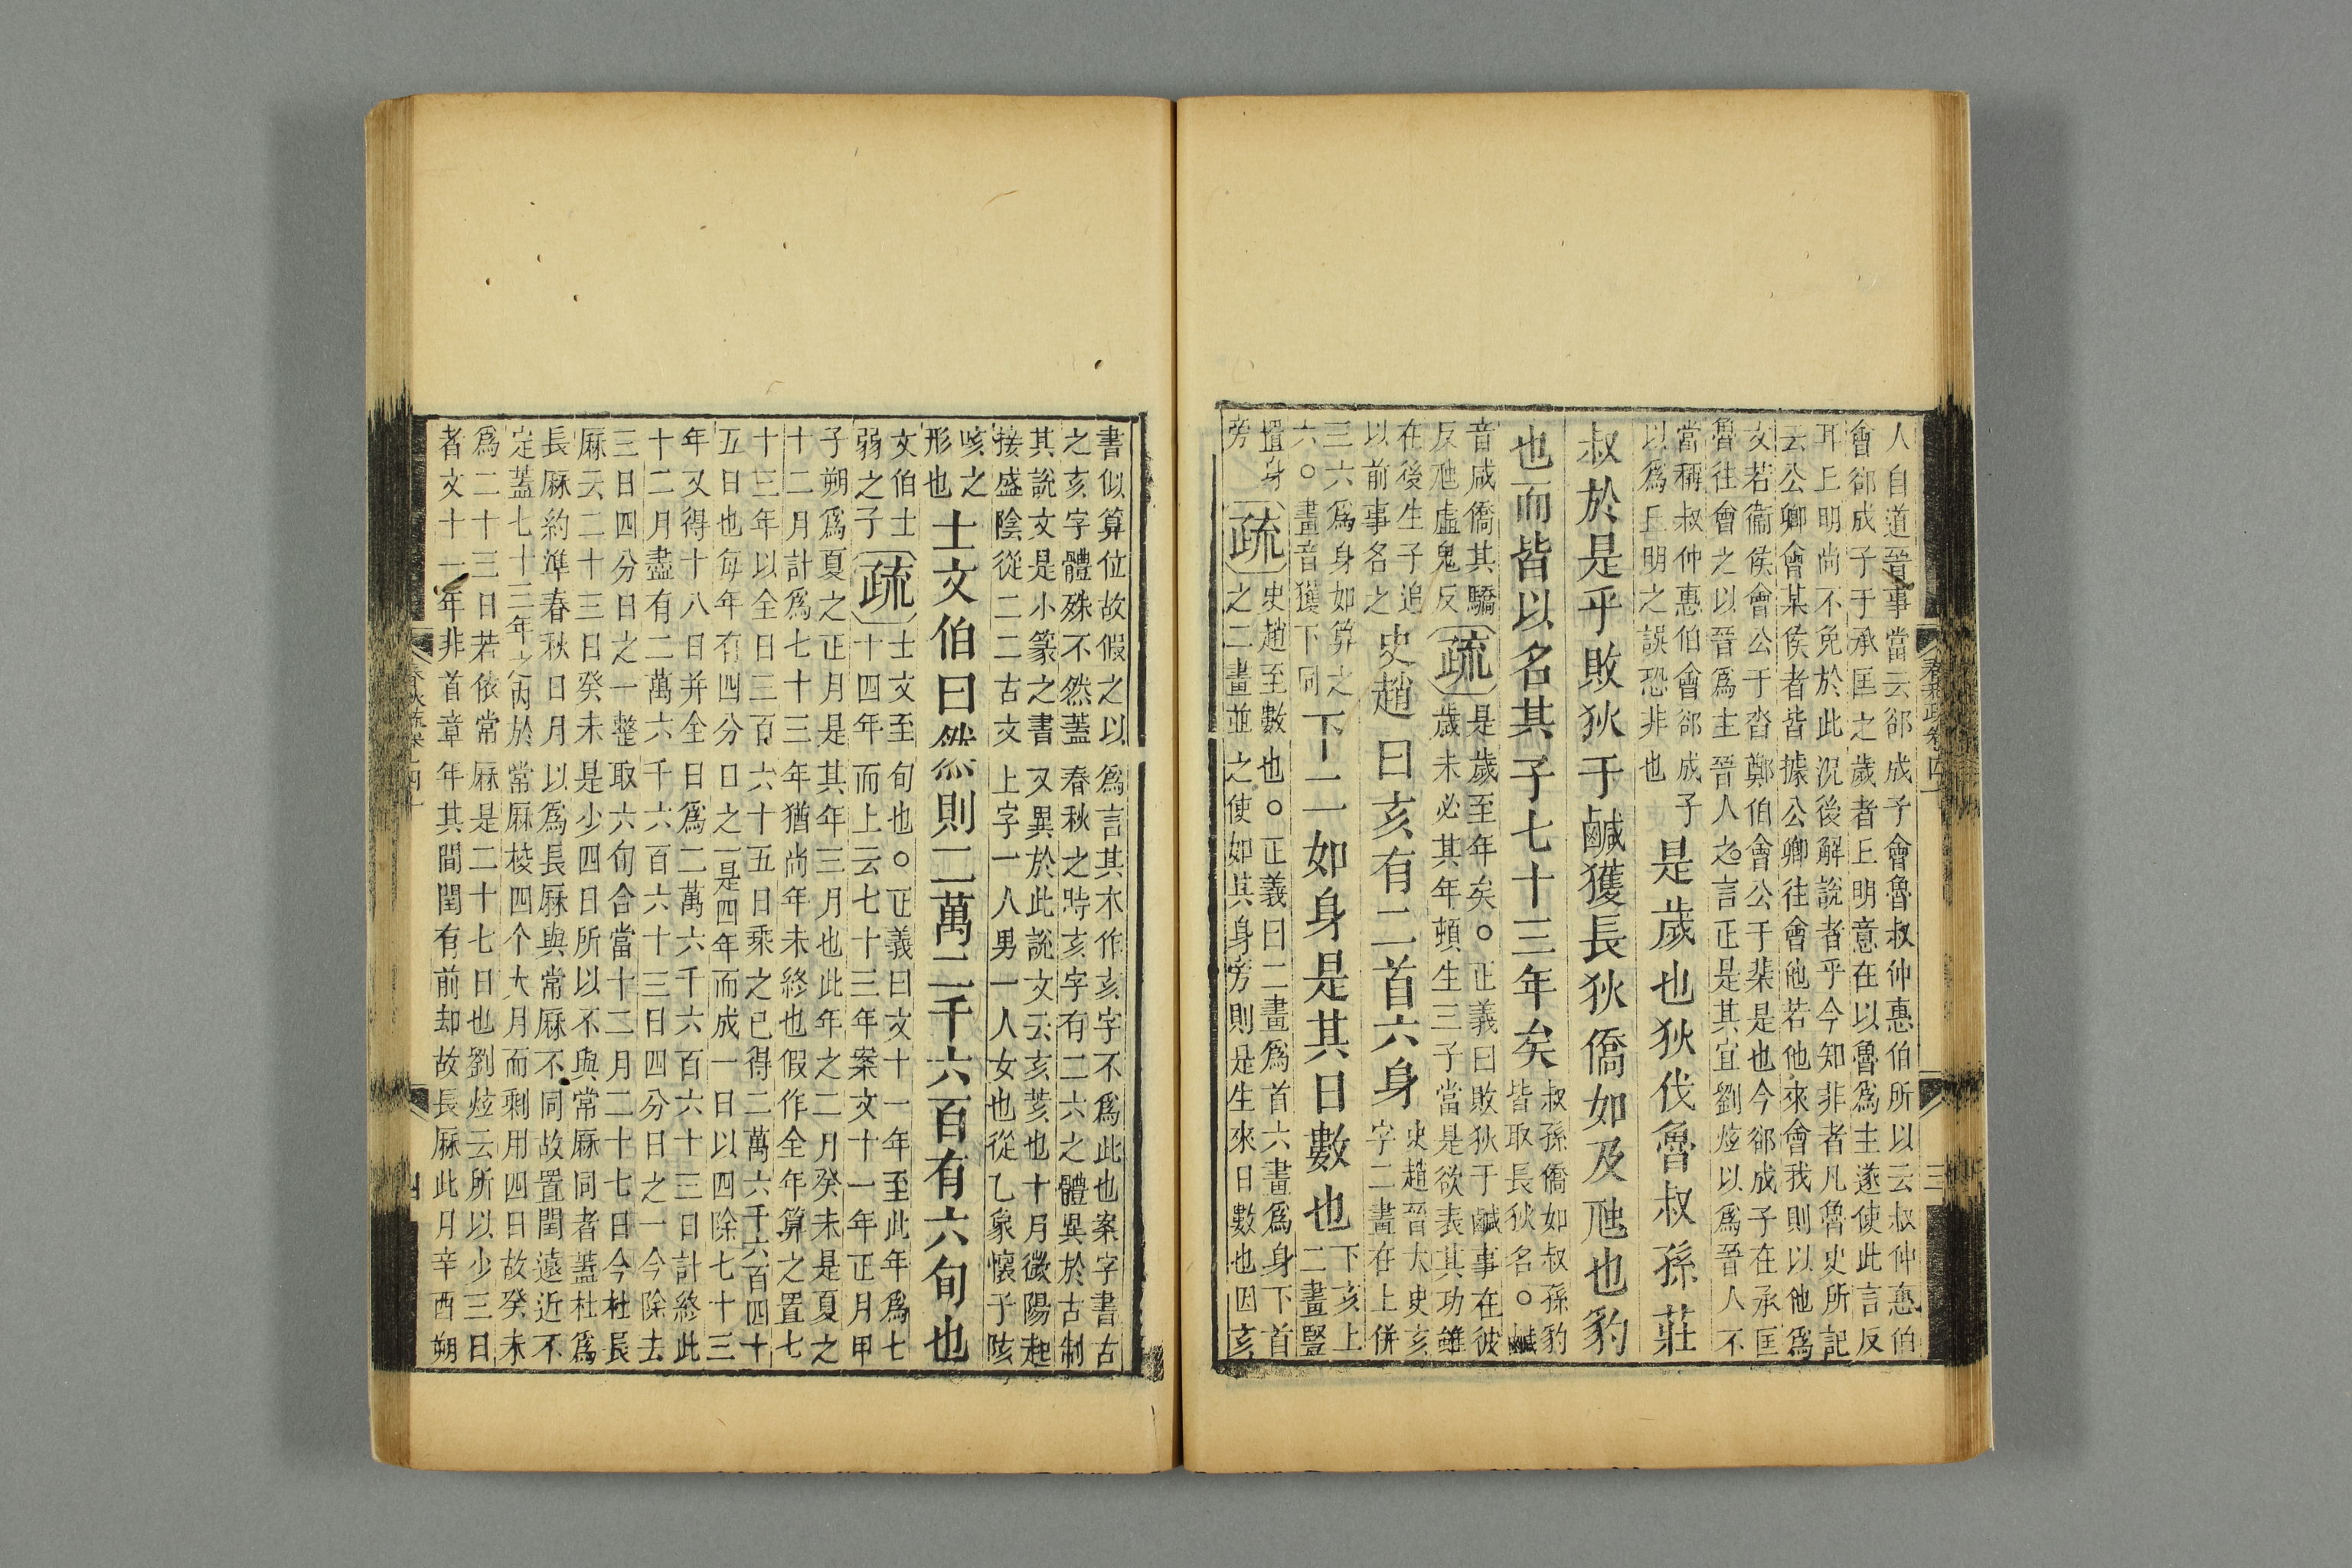 人自道晉事當云郤成子會魯叔仲惠伯所以云叔仲惠伯
會郤成子于承匡之歲者丘明意在以魯為主遂使此言反
耳丘明尚不免於此況後解說者乎今知非者凡魯史所記
云公卿會某侯者皆據公卿往會他若他來會我則以他為
文若衞侯會公于沓鄭伯會公于棐是也今郤成子在承匡
魯往會之以晉為主晉人之言正是其宜劉炫以為晉人不
當稱叔仲惠伯會郤成子
以為丘明之誤恐非也
是歲也狄伐魯叔孫莊
叔於是乎敗狄于鹹獲長狄僑如及虺也豹
也而皆以名其子七十三年矣
叔孫僑如叔孫豹
皆取長狄名○鹹
音咸僑其驕
反虺虛鬼反
疏
是歲至年矣○正義曰敗狄于鹹事在彼
歲未必其年頓生三子當是欲表其功雖
在後生子追
以前事名之
史趙曰亥有二首六身
史趙晉大史亥
字二畫在上併
三六為身如算之
六○畫音獲下同
下二如身是其日數也
下亥上
二畫豎
置身
旁
疏
史趙至數也○正義曰二畫為首六畫為身下首
之二畫並之使如其身旁則是生來日數也因亥
春秋疏卷四十
三
書似算位故假之以為言其本作亥字不為此也案字書古
之亥字體殊不然蓋春秋之時亥字有二六之體異於古制
其說文是小篆之書又異於此說文云亥荄也十月微陽起
接盛陰從二二古文上字一人男一人女也從乙象懷子咳
咳之
形也
士文伯曰然則二萬二千六百有六旬也
文伯士
弱之子
疏
士文至旬也○正義曰文十一年至此年為七
十四年而上云七十三年案文十一年正月甲
子朔為夏之正月是其年三月也此年之二月癸未是夏之
十二月計為七十三年猶尚年未終也假作全年算之置七
十三年以全日三百六十五日乘之已得二萬六千六百四十
五日也每年有四分日之一是四年而成一日以四除七十三
年又得十八日并全日為二萬六千六百六十三日計終此
十二月盡有二萬六千六百六十三日四分日之一今除去
三日四分日之一整取六旬合當十二月二十七日今杜長
厤云二十三日癸未是少四日所以不與常厤同者蓋杜為
長厤約準春秋日月以為長厤與常厤不同故置閏遠近不
定蓋七十三年之內於常厤校四个大月而剩用四日故癸未
為二十三日若依常厤是二十七日也劉炫云所以少三日
者文十一年非首章年其間閏有前却故長厤此月辛酉朔
春秋疏卷四十
四